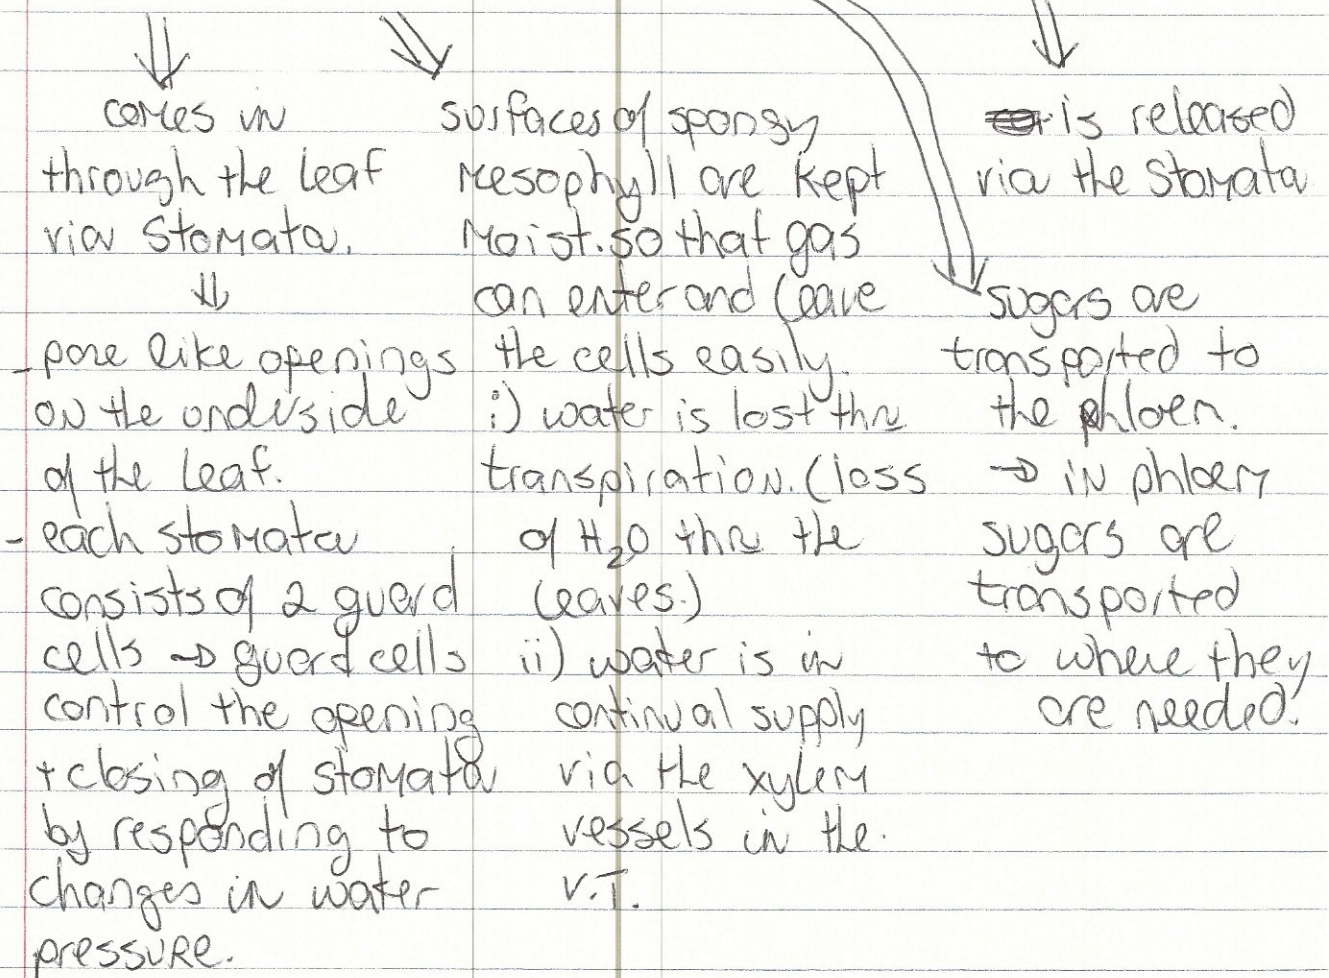 comes in
through the leaf
via stomata.
- pore like openings
on the underside
of the leaf.
- each stomata
consists of 2 guard
cells → guard cells
control the opening
+ closing of stomata
by responding to
changes in water
pressure.
surfaces of spongy
mesophyll are kept
moist. so that gas
can enter and leave
the cells easily.
i) water is lost thru
transpiration. (loss
of H₂O thru the
leaves.)
ii) water is in
continual supply
via the xylem
vessels in the.
V.T.
is released
via the stomata
sugars are
transported to
the phloem.
→ in phloem
sugars are
transported
to where they
are needed.